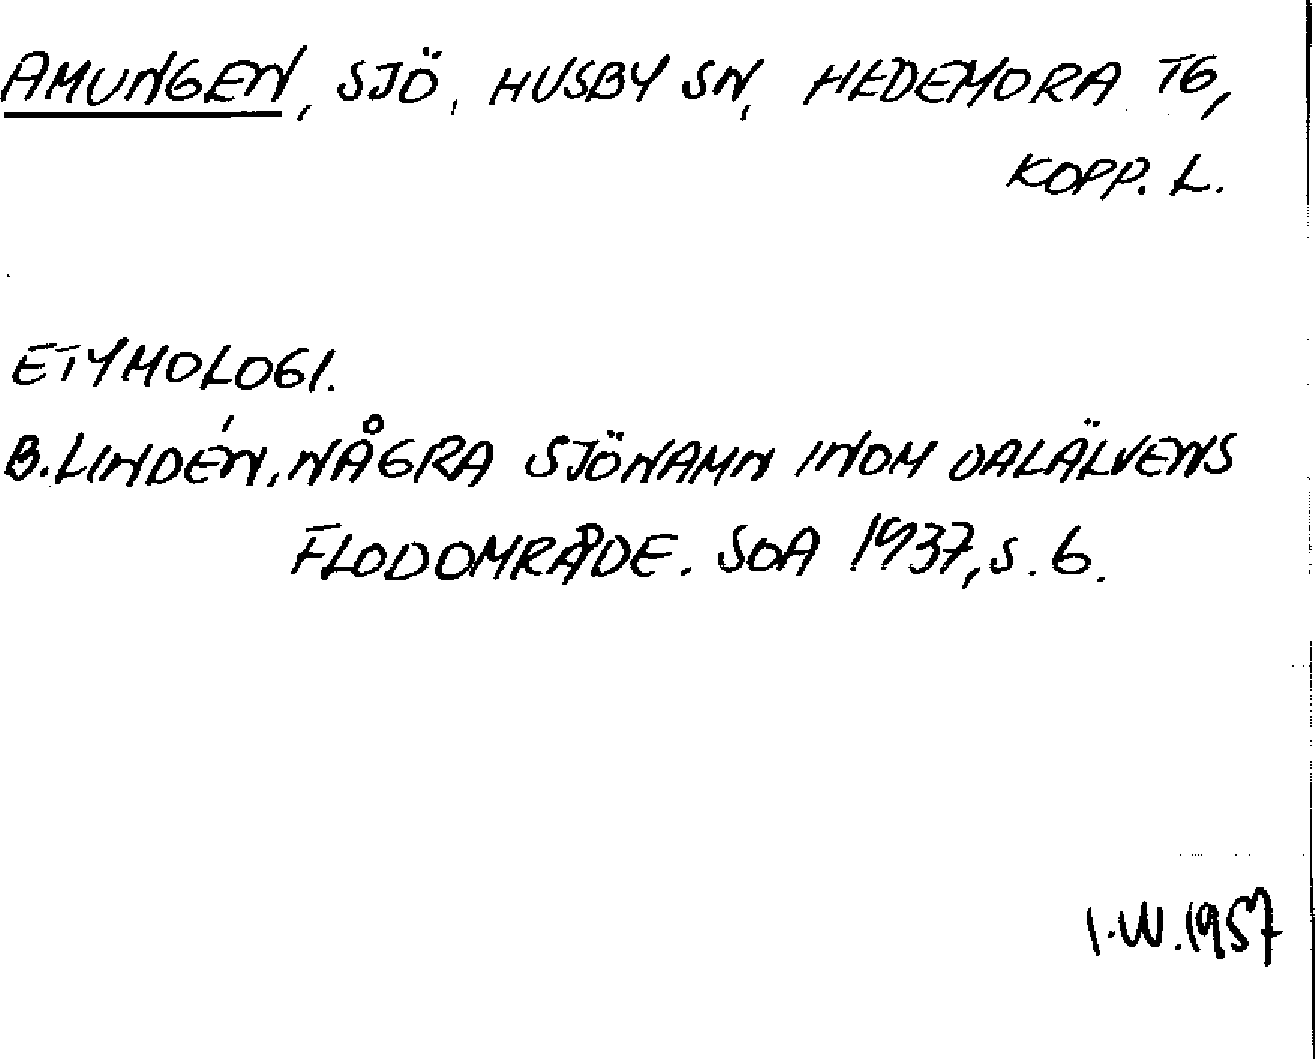 AMUNGEN, SJÖ, HUSBY SN, HEDEMORA TG,
KOPP. L.
ETYMOLOGI.
B. LINDÉN, NÅGRA SJÖNAMN INOM DALÄLVENS
FLODOMRÅDE. SOA 1937, S. 6.
I.W. 1957